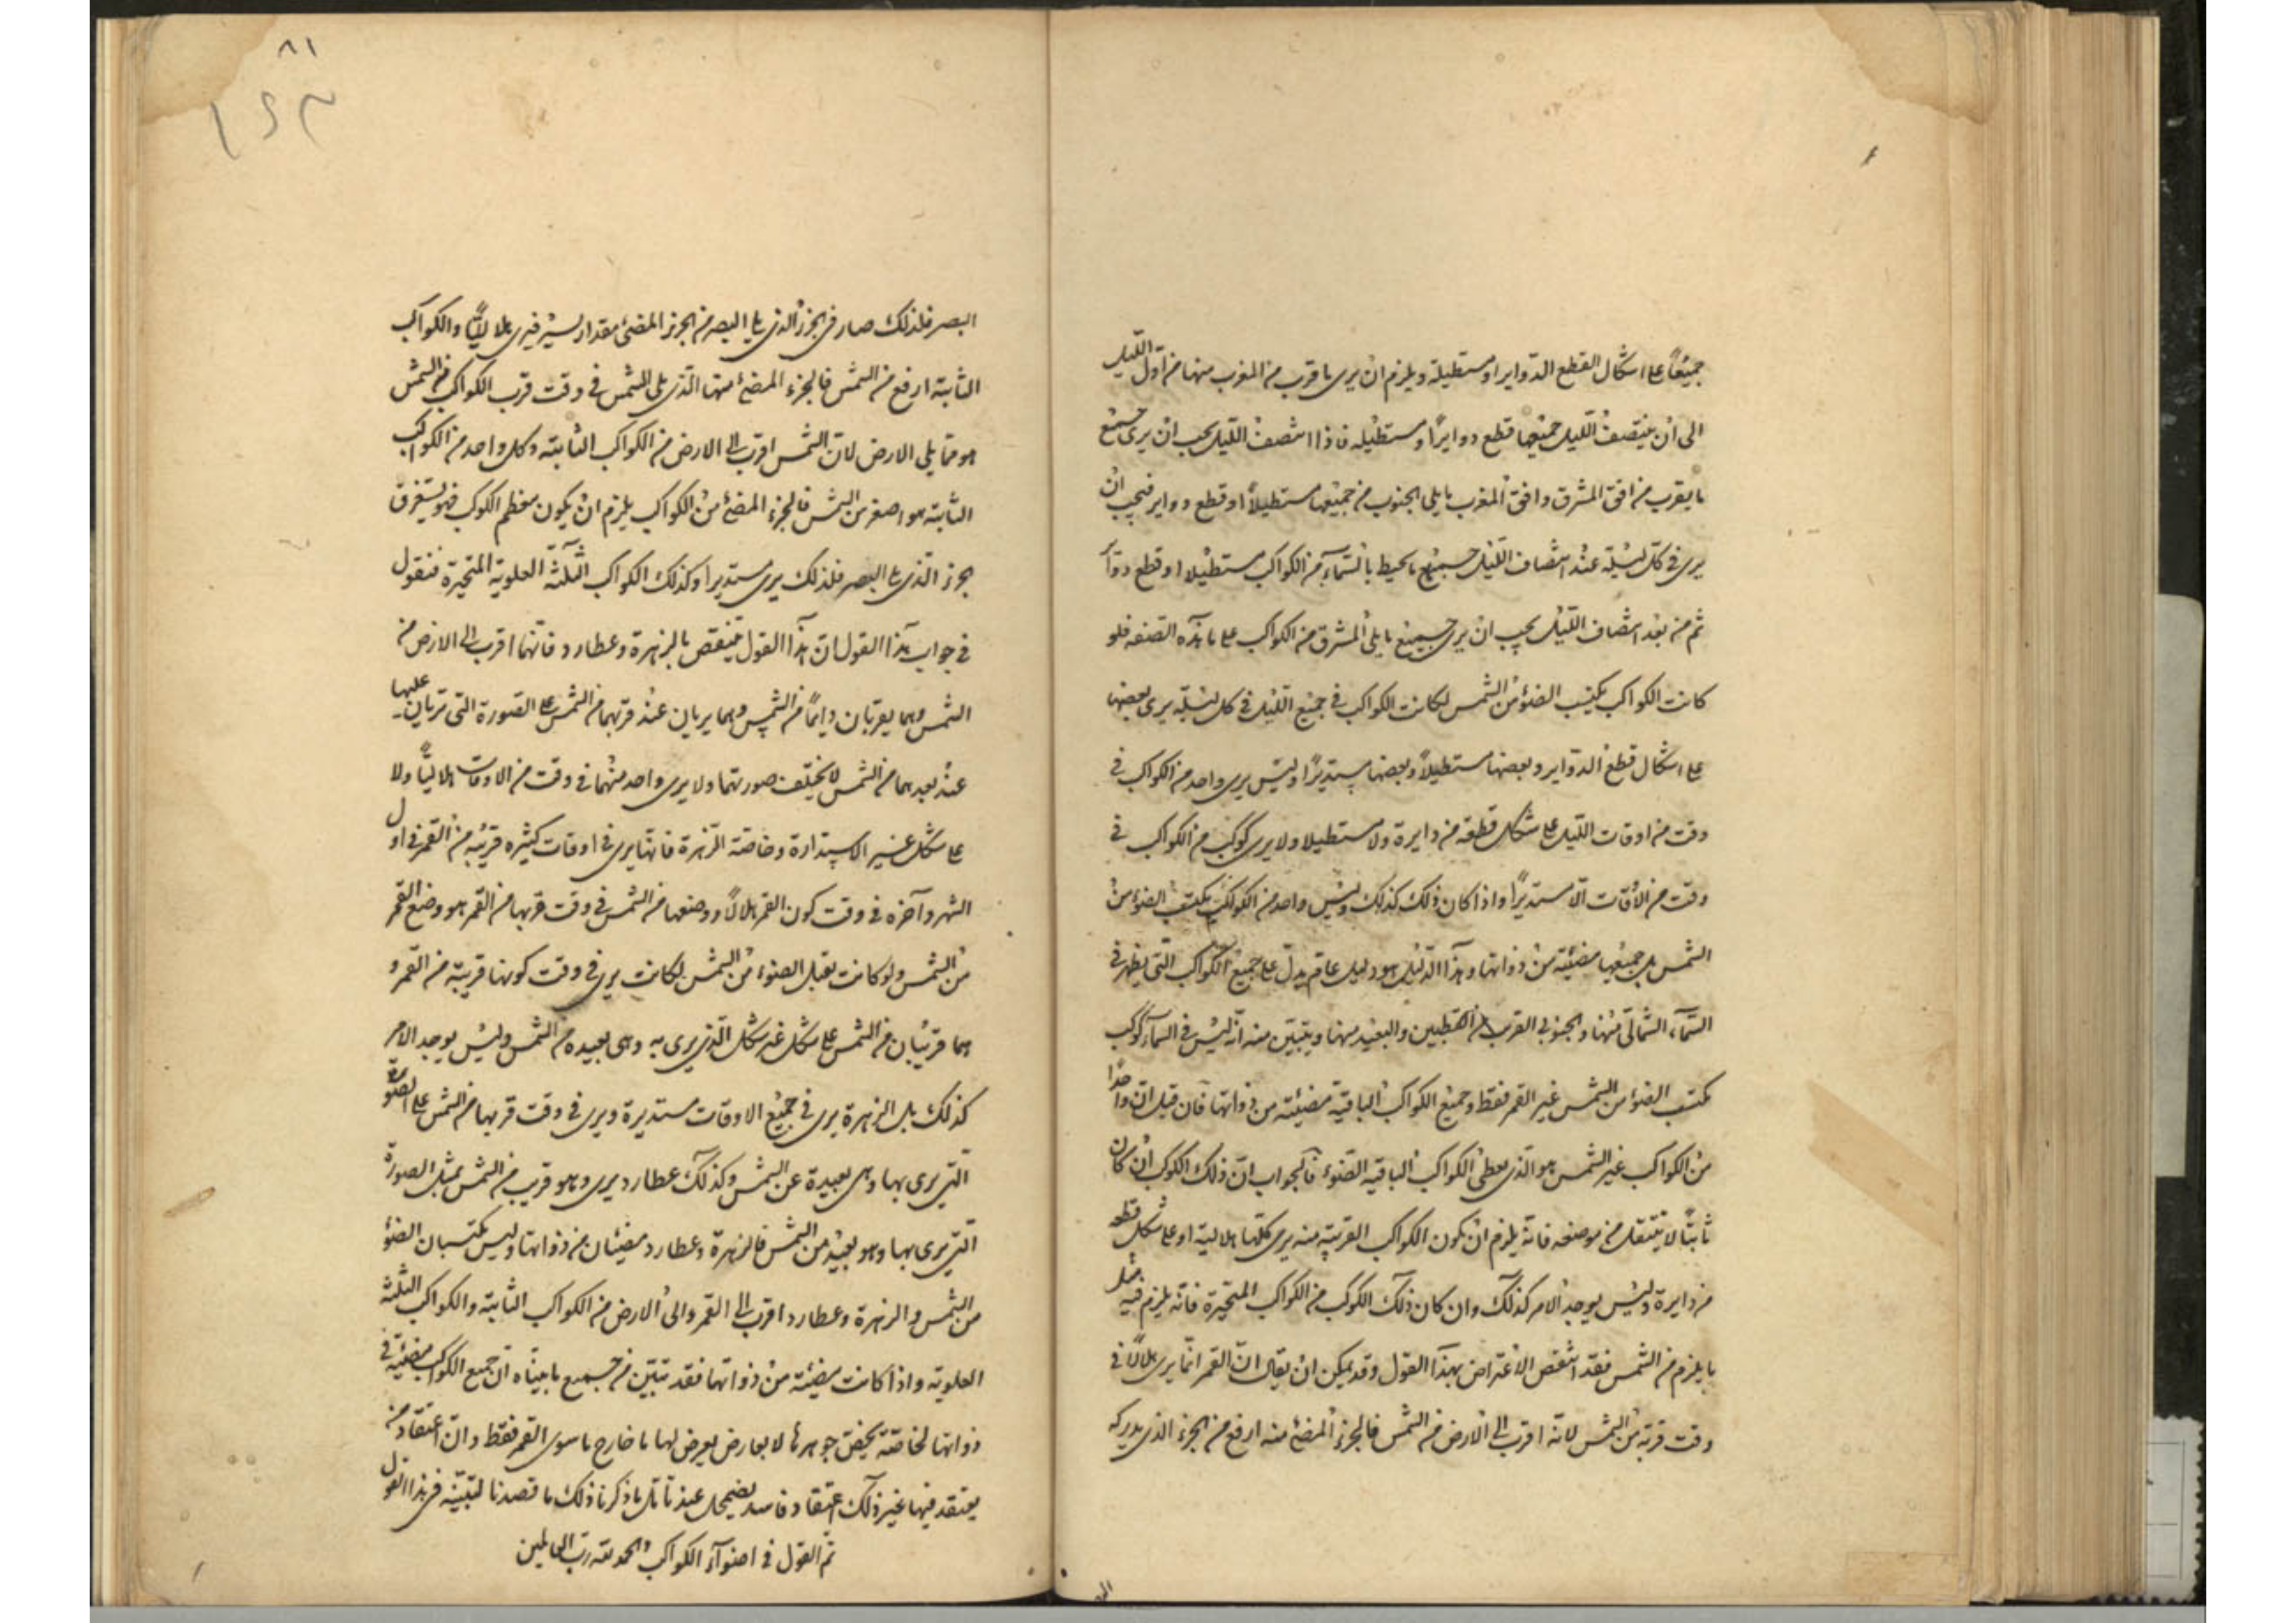 جميعًا على اشكال القطع الدواير او مستطيلة ويلزم ان يرى ما قرب من المغرب منها من اول الليل
الى ان ينتصف الليل جميعها قطع دوايرًا ومستطيله فاذا انتصف الليل يجب ان يرى جميع
ما يقرب من افق المشرق وافق المغرب مايلى الجنوب من جميعها مستطيلاً او قطع دواير فيجب ان
يرى فى كل ليلة عند انتصاف الليل جميع ما يحيط بالسمآء من الكواكب مستطيلا او قطع دوآ
ثم من بعد انتصاف الليل يجب ان يرى جميع مايلى المشرق من الكواكب على ما هذه الصفه فلو
كانت الكواكب يكتسب الضوء من الشمس لكانت الكواكب فى جميع الليل فى كل ليلة يرى بعضها
على اشكال قطع الدواير وبعضها مستطيلاً وبعضها مستديرًا وليس يرى واحد من الكواكب فى
وقت من اوقات الليل على شكل قطعة من دايرة ولا مستطيلا ولا يرى كوكب من الكواكب فى
وقت من الاوقات الا مستديرًا واذا كان ذلك كذلك وليس واحد من الكواكب يكتسب الضوء من
الشمس بل جميعها مضيئة من ذواتها وهذا الدليل هو دليل عام يدل على جميع الكواكب التى يظهر فى
السمآء الشمالى منها والجنوبى القريب من القطبين والبعيد منها ويتبين منه انه ليس فى السمآء كوكب
مكتسب الضوء من الشمس غير القمر فقط وجميع الكواكب الباقية مضيئة من ذواتها فان قيل ان واحدًا
من الكواكب غير الشمس هو الذى يعطى الكواكب الباقية الضوء فالجواب ان ذلك الكوكب ان كان
ثابتًا لا ينتقل من موضعه فانه يلزم ان تكون الكواكب القريبة منه يرى كلها هلالية او على شكل قطعه
من دايرة وليس يوجد الامر كذلك وان كان ذلك الكوكب من الكواكب المتحيرة فانه يلزم فيه مثل
ما يلزم من الشمس فقد انتقض الاعتراض بهذا القول وقد يمكن ان يقال ان القمر انما يرى هلالاً فى
وقت قربه من الشمس لانه اقرب الى الارض من الشمس فالجزء المضئ منه ارفع من الجزء الذى يدركه
البصر فلذلك صار فى الجزء الذى يلى البصر من الجزء المضئ مقدار يسير فيرى هلاليًا والكواكب
الثابتة ارفع من الشمس فالجزء المضئ منها الذى يلى الشمس فى وقت قرب الكواكب من الشمس
هو مما يلى الارض لان الشمس اقرب الى الارض من الكواكب الثابتة وكل واحد من الكواكب
الثابتة هو اصغر من الشمس فالجزء المضئ من الكواكب يلزم ان يكون معظم الكوكب فهو يستغرق
الجزء الذى يلى البصر فلذلك يرى مستديرا وكذلك الكواكب الثلثة العلوية المتحيرة فنقول
فى جواب هذا القول ان هذا القول ينتقض بالزهرة وعطارد فانهما اقرب الى الارض من
الشمس وهما يقربان دايمًا من الشمس وهما يريان عند قربهما من الشمس على الصورة التى تريان عليها
عند بعدهما من الشمس لا يختلف صورتهما ولا يرى واحد منهما فى وقت من الاوقات هلاليًا ولا
على شكل غير الاستدارة وخاصة الزهرة فانها يرى فى اوقات كثيره قريبه من القمر فى اول
الشهر وآخره فى وقت كون القمر هلالاً ووضعها من الشمس فى وقت قربها من القمر هو وضع القمر
من الشمس ولو كانت تقبل الضوء من الشمس لكانت يرى فى وقت كونها قريبة من القمر و
هما قريبان من الشمس على شكل غير شكل الذى يرى به وهى بعيده من الشمس وليس يوجد الامر
كذلك بل الزهرة يرى فى جميع الاوقات مستديرة ويرى فى وقت قربها من الشمس على الصورة
التى يرى بها وهى بعيدة عن الشمس وكذلك عطارد يرى وهو قريب من الشمس بمثل الصورة
التى يرى بها وهو بعيد من الشمس فالزهرة وعطارد مضيئان من ذواتها وليس يكتسبان الضوء
من الشمس والزهرة وعطارد اقرب الى القمر والى الارض من الكواكب الثابتة والكواكب الثلثة
العلوية واذا كانت مضيئة من ذواتها فقد تبين من جميع ما بيناه ان جميع الكواكب مضيئة فى
ذواتها لخاصة يخص جوهرها لا بعارض يعرض لها ما خارج ما سوى القمر فقط وان اعتقاد من
يعتقد فيها غير ذلك اعتقاد فاسد يضمحل عند تامل ما ذكرنا ذلك ما قصدنا لنبينه فى هذا القول
تم القول فى اضوآء الكواكب والحمد لله رب العالمين